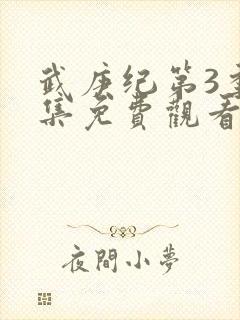 武庚纪第3季
集免費觀看
夜間小夢